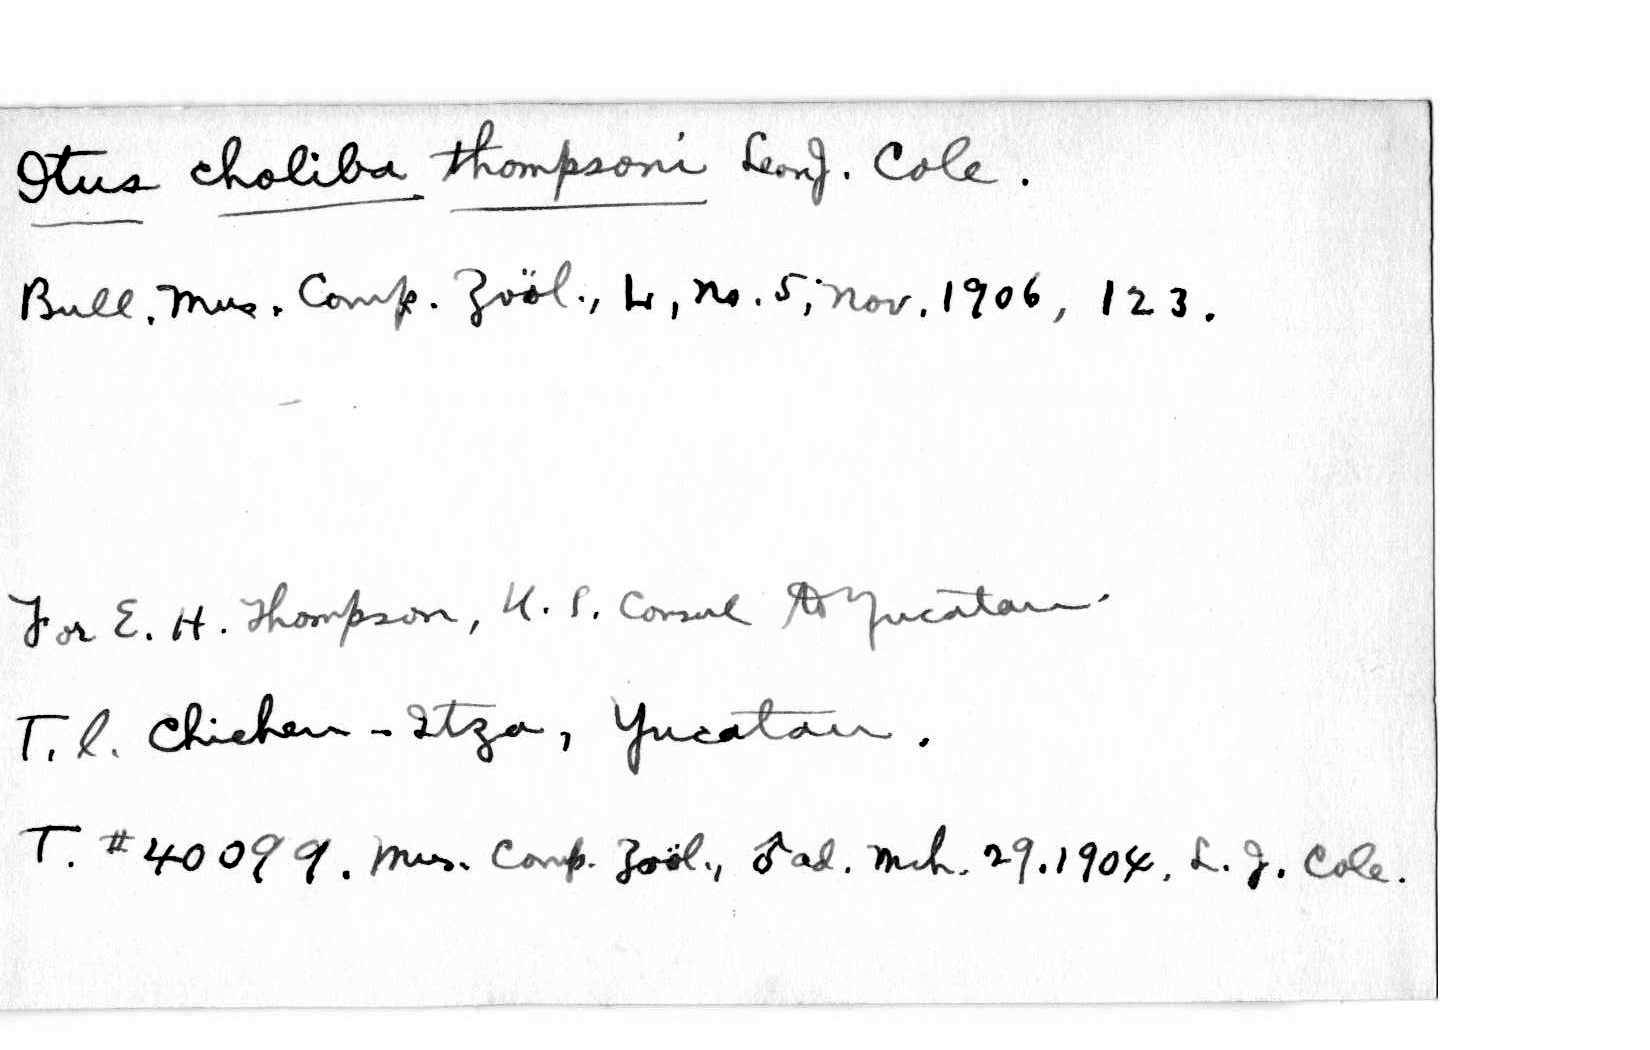 Otus choliba thompsoni Leon J. Cole.
Bull. Mus. Comp. Zoöl., L, no. 5, Nov. 1906, 123.
For E. H. Thompson, U. S. Consul to Yucatan.
T. l. Chichen-Itza, Yucatan.
T. #40099. Mus. Comp. Zoöl., ♂ ad. Mch. 29. 1904. L. J. Cole.